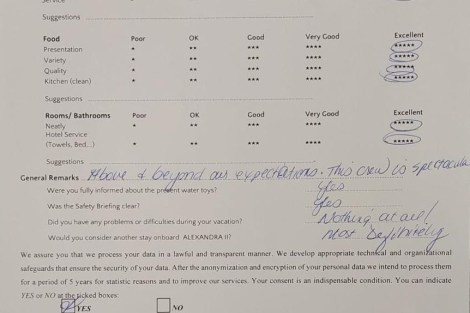 Service
Suggestions
Food Poor OK Good Very Good Excellent
Presentation * ** *** **** *****
Variety * ** *** **** *****
Quality * ** *** **** *****
Kitchen (clean) * ** *** **** *****
Suggestions
Rooms/ Bathrooms Poor OK Good Very Good Excellent
Neatly * ** *** **** *****
Hotel Service
(Towels, Bed,..) * ** *** **** *****
Suggestions
General Remarks Above & beyond our expectations. This crew is spectacula
Were you fully informed about the present water toys? yes
Was the Safety Briefing clear? yes
Did you have any problems or difficulties during your vacation? Nothing at all!
Would you consider another stay onboard ALEXANDRA II? most definitely
We assure you that we process your data in a lawful and transparent manner. We develop appropriate technical and organizational
safeguards that ensure the security of your data. After the anonymization and encryption of your personal data we intend to process them
for a period of 5 years for statistic reasons and to improve our services. Your consent is an indispensable condition. You can indicate
YES or NO at the ticked boxes:
YES NO